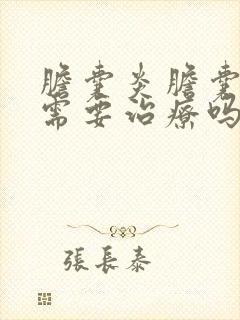 膽囊炎膽囊
需要治療嗎
張長泰